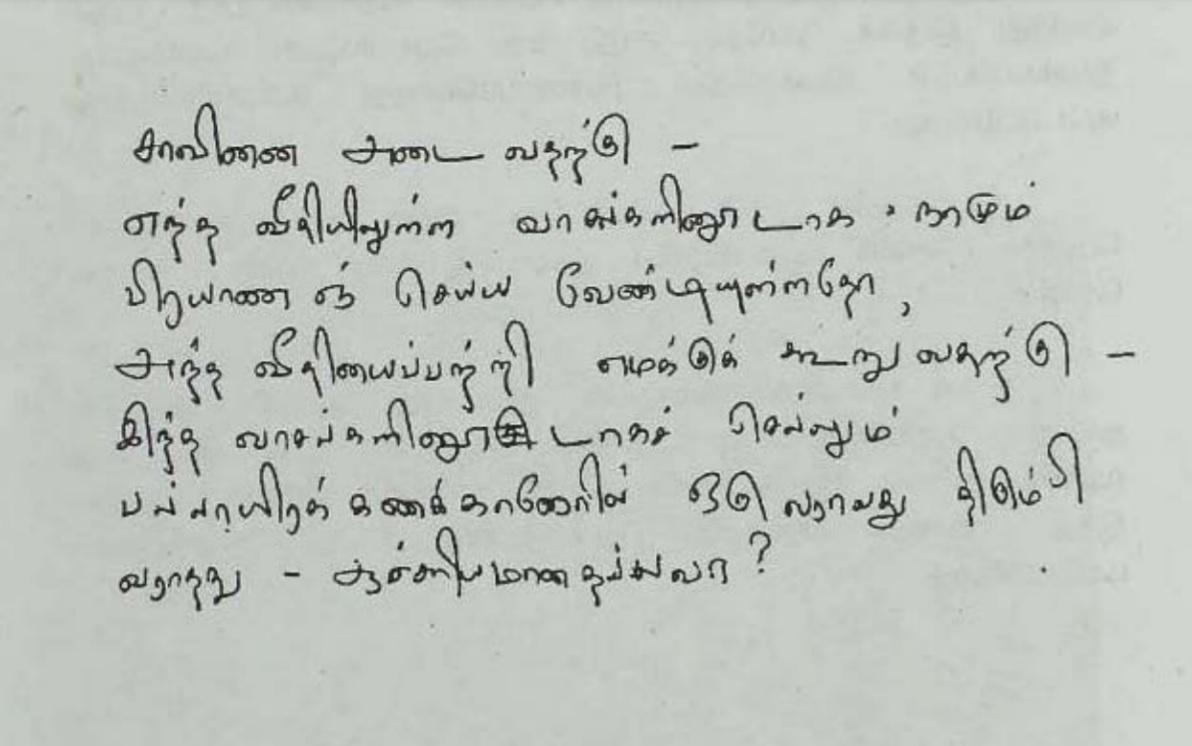 சாவினை அடைவதற்கு -
எந்த வீதியிலுள்ள வாசல்களினூடாக, நாமும்
பிரயாணஞ் செய்ய வேண்டியுள்ளதோ,
அந்த வீதியைப்பற்றி எமக்குக் கூறுவதற்கு -
இந்த வாசல்களினூடாகச் செல்லும்
பல்லாயிரக்கணக்கானோரில் ஒருவராவது திரும்பி
வராதது - ஆச்சரியமானதல்லவா?